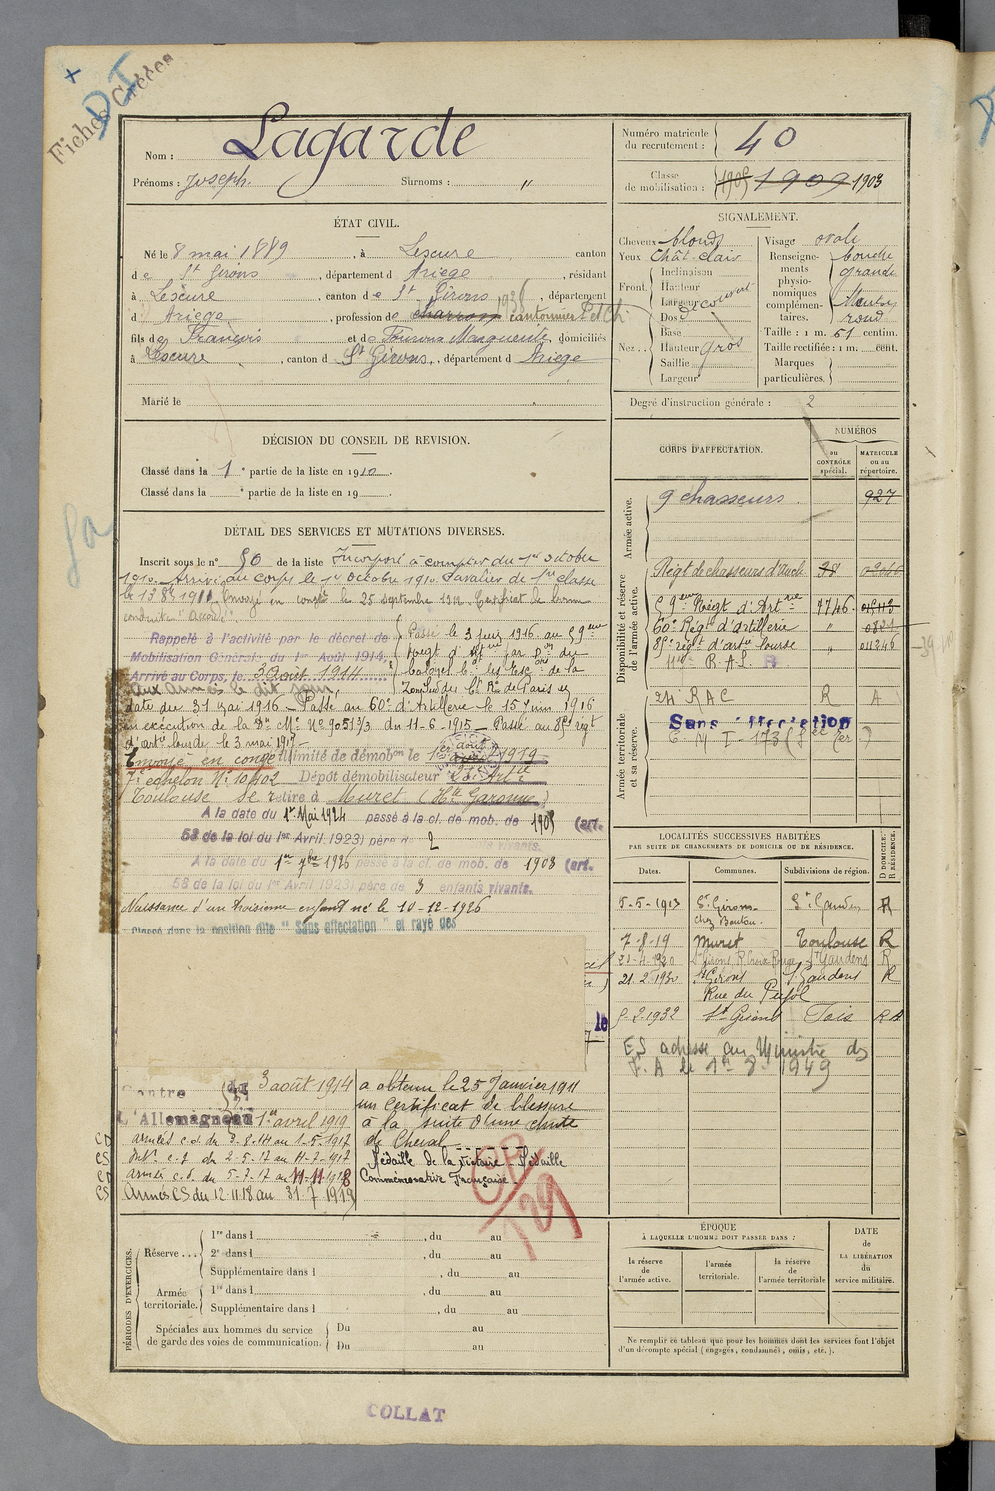 Fiches Créées
D I
Nom : Lagarde
Prénoms : Joseph. Surnoms : "
Numéro matricule du recrutement : 40
Classe de mobilisation : 1905 1909 1903
ÉTAT CIVIL.
Né le 8 mai 1889, à Lescure canton
de St Girons, département d Ariege, résidant
à Lescure, canton de St Girons, département
d Ariege, profession de charron 1936 cantonnier
fils de François et de Marguerite, domiciliés
à Lescure, canton d St Girons, département d Ariege
Marié le
SIGNALEMENT.
Cheveux blonds
Yeux Chât-clair
Front. Inclinaison
Hauteur
Largeur découvert
Nez.. Dos
Base
Hauteur gros
Saillie
Largeur
Visage ovale
Renseignements physionomiques complémentaires. bouche grande Menton rond
Taille : 1 m. 61 centim.
Taille rectifiée : 1 m. cent.
Marques particulières.
Degré d'instruction générale : 2
DÉCISION DU CONSEIL DE REVISION.
Classé dans la 1e partie de la liste en 1910.
Classé dans la e partie de la liste en 19
CORPS D'AFFECTATION.
NUMÉROS
au CONTRÔLE spécial.
MATRICULE ou au répertoire.
Armée active.
9 chasseurs 927
Disponibilité et réserve de l'armée active.
Régt de chasseurs d'Auch 38
59eme Régt d'Artrie 7746
60e Régt d'artillerie " 0821
8 régt d'artie lourde " 011246
R.A.L.
Armée territoriale et sa réserve.
24 RAC R A
Sans affectation
DÉTAIL DES SERVICES ET MUTATIONS DIVERSES.
Inscrit sous le n° 50 de la liste Incorporé à compter du 1er octobre
1910. Arrivé au corps le 1er octobre 1910. Cavalier de 1re classe
Envoyé en congé le 25 septembre 1912. Certificat de bonne
conduite "Accordé".
Rappelé à l'activité par le décret de
Mobilisation Générale du 1er Août 1914.
Arrivé au Corps, le 3 Août 1914
aux armées le dit jour,
Passé le 3 février 1916 au 59eme
Régt d'Artie par
de la
de Paris en
date du 31 mai 1916 – Passé au 60e d'Artillerie le 15 juin 1916
en exécution de la Dn Mle N° 9051 3/3 du 11-6-1915 – Passé au régt
d'artie lourde le 3 mai 1917 –
Envoyé en congé illimité de démobon le 1er août 1919
7e échelon N° 10402 Dépôt démobilisateur
Toulouse Se retire à Muret (Hte Garonne)
A la date du 1er Mai 1924 passé à la cl. de mob. de 1905 (art.
58 de la loi du 1er Avril 1923) père de 2 enfants vivants.
A la date du 1er 1926 passé à la cl. de mob. de 1903 (art.
58 de la loi du 1er Avril 1923) père de 3 enfants vivants.
Naissance d'un troisième enfant né le 10-12-1926
Classé dans la position dite "Sans affectation" et rayé des
LOCALITÉS SUCCESSIVES HABITÉES
PAR SUITE DE CHANGEMENTS DE DOMICILE OU DE RÉSIDENCE.
Dates. Communes. Subdivisions de région. D DOMICILE: R RÉSIDENCE.
5-5-1913 St Girons chez Boutou. St Gaudens R
7-8-19 Muret Toulouse R
21-11-1920 St Girons R. Croix Rouge St Gaudens R
21.2.1930 St Girons Rue du Pujol St Gaudens R
5-2-1932 St Girons Foix R
ES adresse au Ministre
F. A le 1er 8 1949
Contre
l'Allemagne
du 3 août 1914
au 1er avril 1919
CD Armées c.d. du 3-8-14 au 1-5-1917
CS Int. c.s. du 2-5-17 au 11-7-1917
CD Armées c.d. du 5-7-17 au 11-11-1918
CS Armées CS du 12.11.18 au 31.7.1919
a obtenu le 25 Janvier 1911
un certificat de blessure
à la suite d'une chute
de Cheval
Médaille de la Victoire – Médaille
Commémorative Française.
PÉRIODES D'EXERCICES.
Réserve... 1re dans l , du au
2e dans l , du au
Supplémentaire dans l , du au
Armée territoriale. 1re dans l , du au
Supplémentaire dans l , du au
Spéciales aux hommes du service de garde des voies de communication. Du au
Du au
ÉPOQUE
À LAQUELLE L'HOMME DOIT PASSER DANS :
la réserve de l'armée active.
l'armée territoriale.
la réserve de l'armée territoriale
DATE de LA LIBÉRATION du service militaire.
Ne remplir ce tableau que pour les hommes dont les services font l'objet
d'un décompte spécial (engagés, condamnés, omis, etc.).
COLLAT